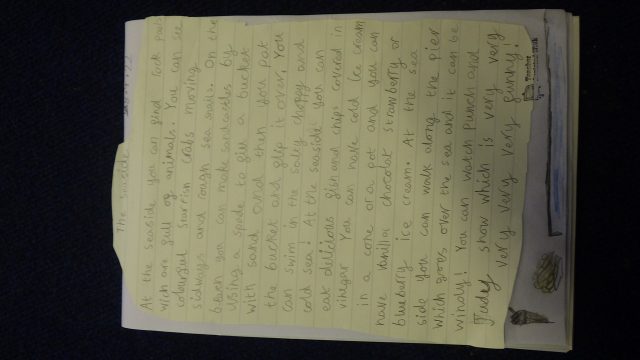 The seaside
At the seaside you can find rock pools
wich are full of animals. You can see
colourful starfish crabs moving
sidways and rough sea snails. On the
beach you can make sandcastles by
using a spade to fill a bucket
with sand and then you pat
the bucket and flip it over. You
can swim in the salty choppy and
cold sea! At the seaside you can
eat delicious fish and chips covered in
vinegar You can have cold ice cream
in a cone or a pot and you can
have vanilla chocolat strawberry or
blueberry ice cream. At the sea
side you can walk along the pier
which goes over the sea and it can be
windy! You can watch Punch and
Judey show which is very very
very very very funny!